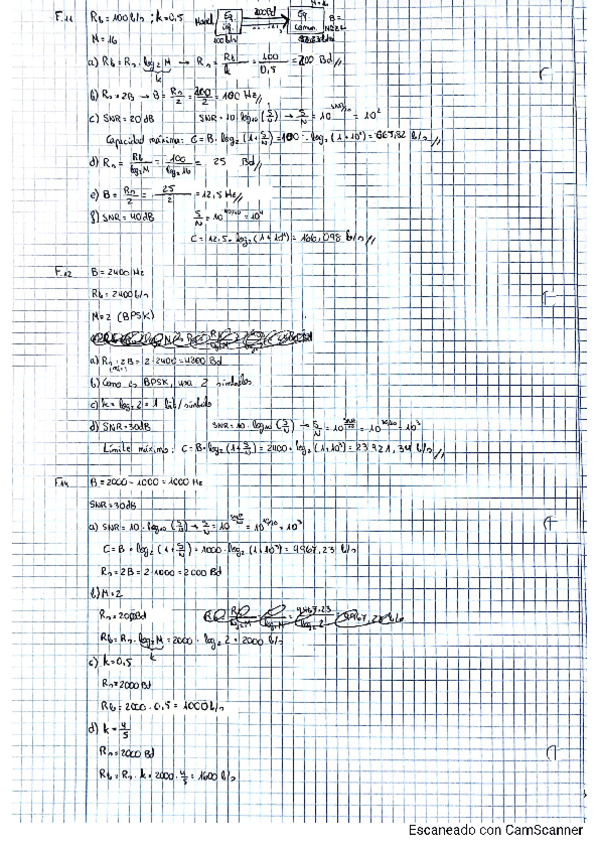 F.11 Rb = 100 b/s ; k=0,5
M = 16
a) Rb = Rs · log2 M → Rs = Rb/k = 100/0,5 = 200 Bd //
k
b) Rs = 2B → B = Rs/2 = 200/2 = 100 Hz //
c) SNR = 20 dB SNR = 10 · log10 (S/N) → S/N = 10^SNR/10 = 10^2
Capacidad máxima: C = B · log2 (1 + S/N) = 100 · log2 (1 + 10^2) = 665,82 b/s //
d) Rs = Rb/log2 M = 100/log2 16 = 25 Bd //
e) B = Rs/2 = 25/2 = 12,5 Hz //
f) SNR = 40 dB S/N = 10^40/10 = 10^4
C = 12,5 · log2 (1 + 10^4) = 166,098 b/s //
F.12 B = 2400 Hz
Rb = 2400 b/s
M = 2 (BPSK)
a) Rs = 2B = 2 · 2400 = 4800 Bd
b) Como es BPSK, usa 2 símbolos
c) k = log2 2 = 1 bit/símbolo
d) SNR = 30 dB SNR = 10 · log10 (S/N) → S/N = 10^SNR/10 = 10^30/10 = 10^3
Límite máximo: C = B · log2 (1 + S/N) = 2400 · log2 (1 + 10^3) = 23921,34 b/s //
F.14 B = 2000 - 1000 = 1000 Hz
SNR = 30 dB
a) SNR = 10 · log10 (S/N) → S/N = 10^SNR/10 = 10^30/10 = 10^3
C = B · log2 (1 + S/N) = 1000 · log2 (1 + 10^3) = 9967,23 b/s
Rs = 2B = 2 · 1000 = 2000 Bd
b) M = 2
Rs = 2000 Bd
Rb = Rs · log2 M = 2000 · log2 2 = 2000 b/s
k
c) k = 0,5
Rs = 2000 Bd
Rb = 2000 · 0,5 = 1000 b/s
d) k = 4/5
Rs = 2000 Bd
Rb = Rs · k = 2000 · 4/5 = 1600 b/s
Escaneado con CamScanner